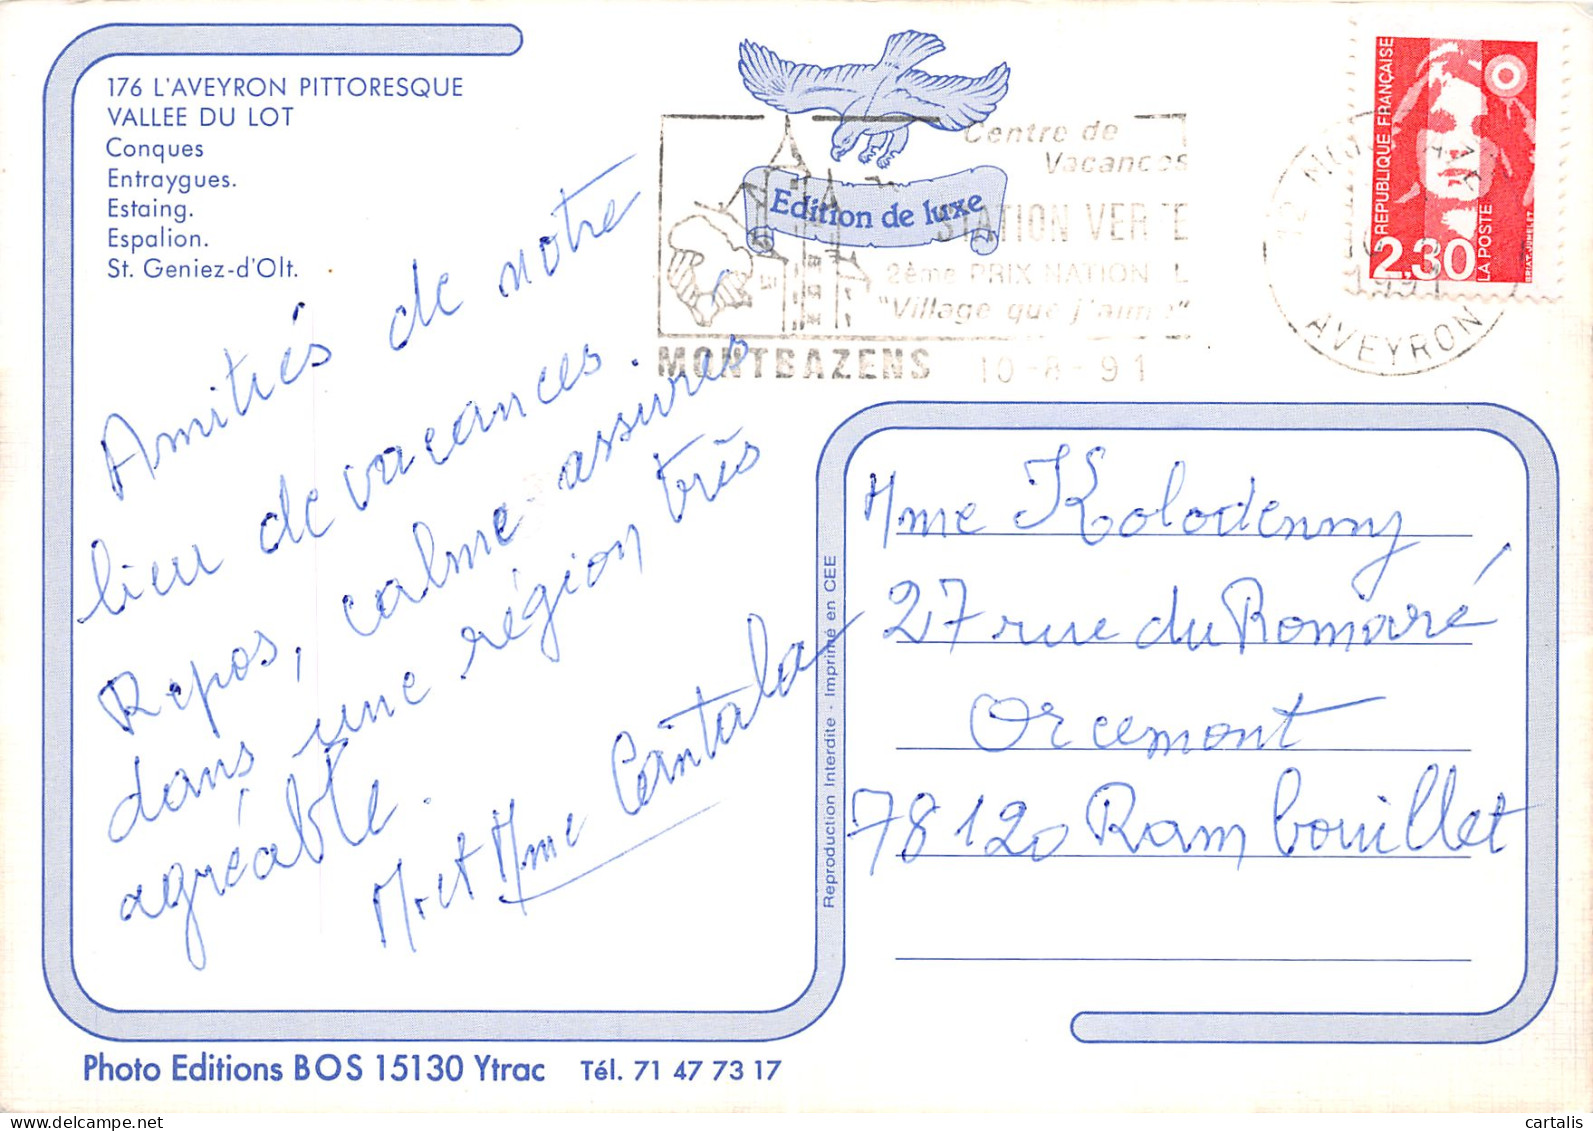 176 L'AVEYRON PITTORESQUE
VALLEE DU LOT
Conques
Entraygues.
Estaing.
Espalion.
St. Geniez-d'Olt.
Edition de luxe
Centre de
Vacances
STATION VERTE
2ème PRIX NATION L
"Village que j'aime"
MONTBAZENS 10-8-91
AVEYRON
REPUBLIQUE FRANÇAISE
2,30
LA POSTE
Amitiés de notre
lieu de vacances.
Repos, calme assurés
dans une région très
agréable.
Mr et Mme Cantala
Reproduction Interdite - Imprimé en CEE
Mme Kolodenny
27 rue du Romaré
Orcemont
78120 Rambouillet
Photo Editions BOS 15130 Ytrac Tél. 71 47 73 17
cartalis